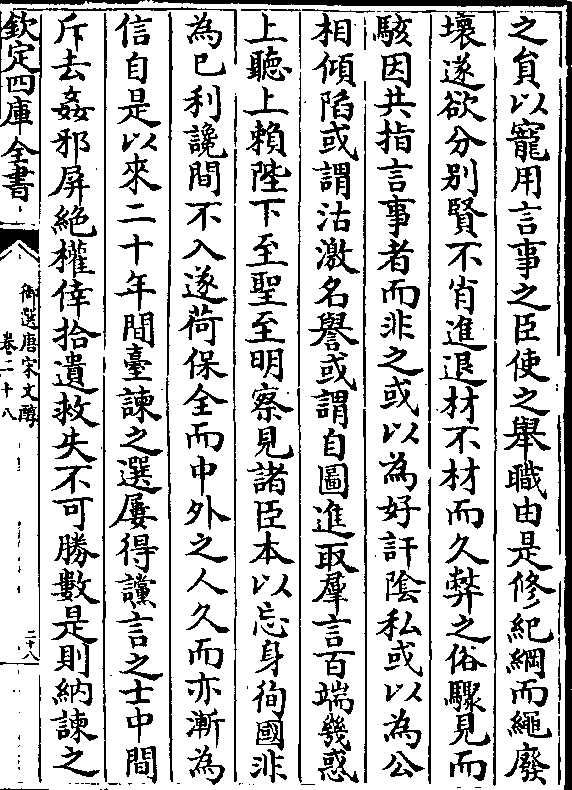 之員以寵用言事之臣使之舉職由是修紀綱而繩廢
壞遂欲分别賢不肖進退材不材而久弊之俗驟見而
駭因共指言事者而非之或以為好訐陰私或以為公
相傾陷或謂沽激名譽或謂自圖進取羣言百端幾惑
上聽上賴陛下至聖至明察見諸臣本以忘身徇國非
為已利讒間不入遂荷保全而中外之人久而亦漸為
信自是以來二十年間臺諫之選屢得讜言之士中間
斥去姦邪屏絶權倖拾遺救失不可勝數是則納諫之
欽定四庫全書
御選唐宋文醇
卷二十八
二十八